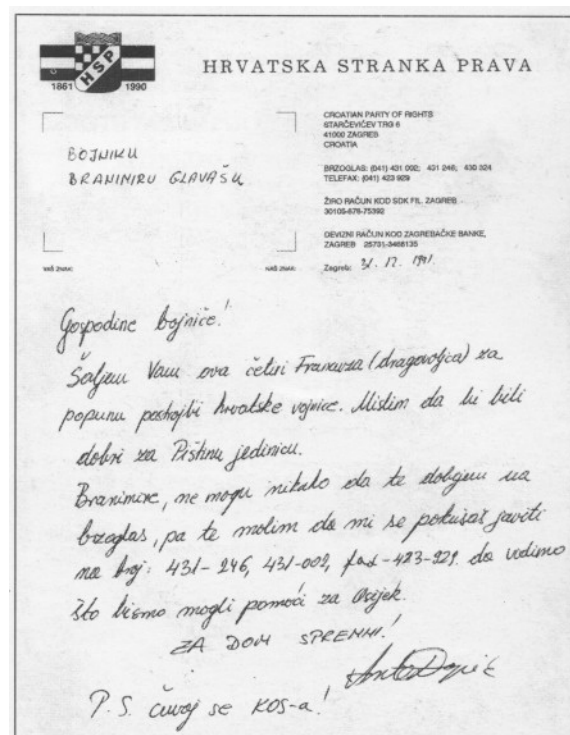 HSP
1861 1990
HRVATSKA STRANKA PRAVA
CROATIAN PARTY OF RIGHTS
STARČEVIĆEV TRG 6
41000 ZAGREB
CROATIA
BOJNIKU
BRANIMIRU GLAVAŠU
BRZOGLAS: (041) 431 002; 431 246; 430 324
TELEFAX: (041) 423 929
ŽIRO RAČUN KOD SDK FIL. ZAGREB
30105-678-75392
DEVIZNI RAČUN KOD ZAGREBAČKE BANKE,
ZAGREB 25731-3468135
VAŠ ZNAK: NAŠ ZNAK: Zagreb: 31. 12. 1991.
Gospodine bojniče!
Šaljem Vam ova četiri Francuza (dragovoljca) za
popunu postrojbi hrvatske vojnice. Mislim da bi bili
dobri za Pištinu jedinicu.
Branimire, ne mogu nikako da te dobijem na
brzoglas, pa te molim da mi se pokušaš javiti
na broj: 431-246, 431-002, fax-423-929. da vidimo
što bismo mogli pomoći za Osijek.
ZA DOM SPREMNI!
P.S. Čuvaj se KOS-a!